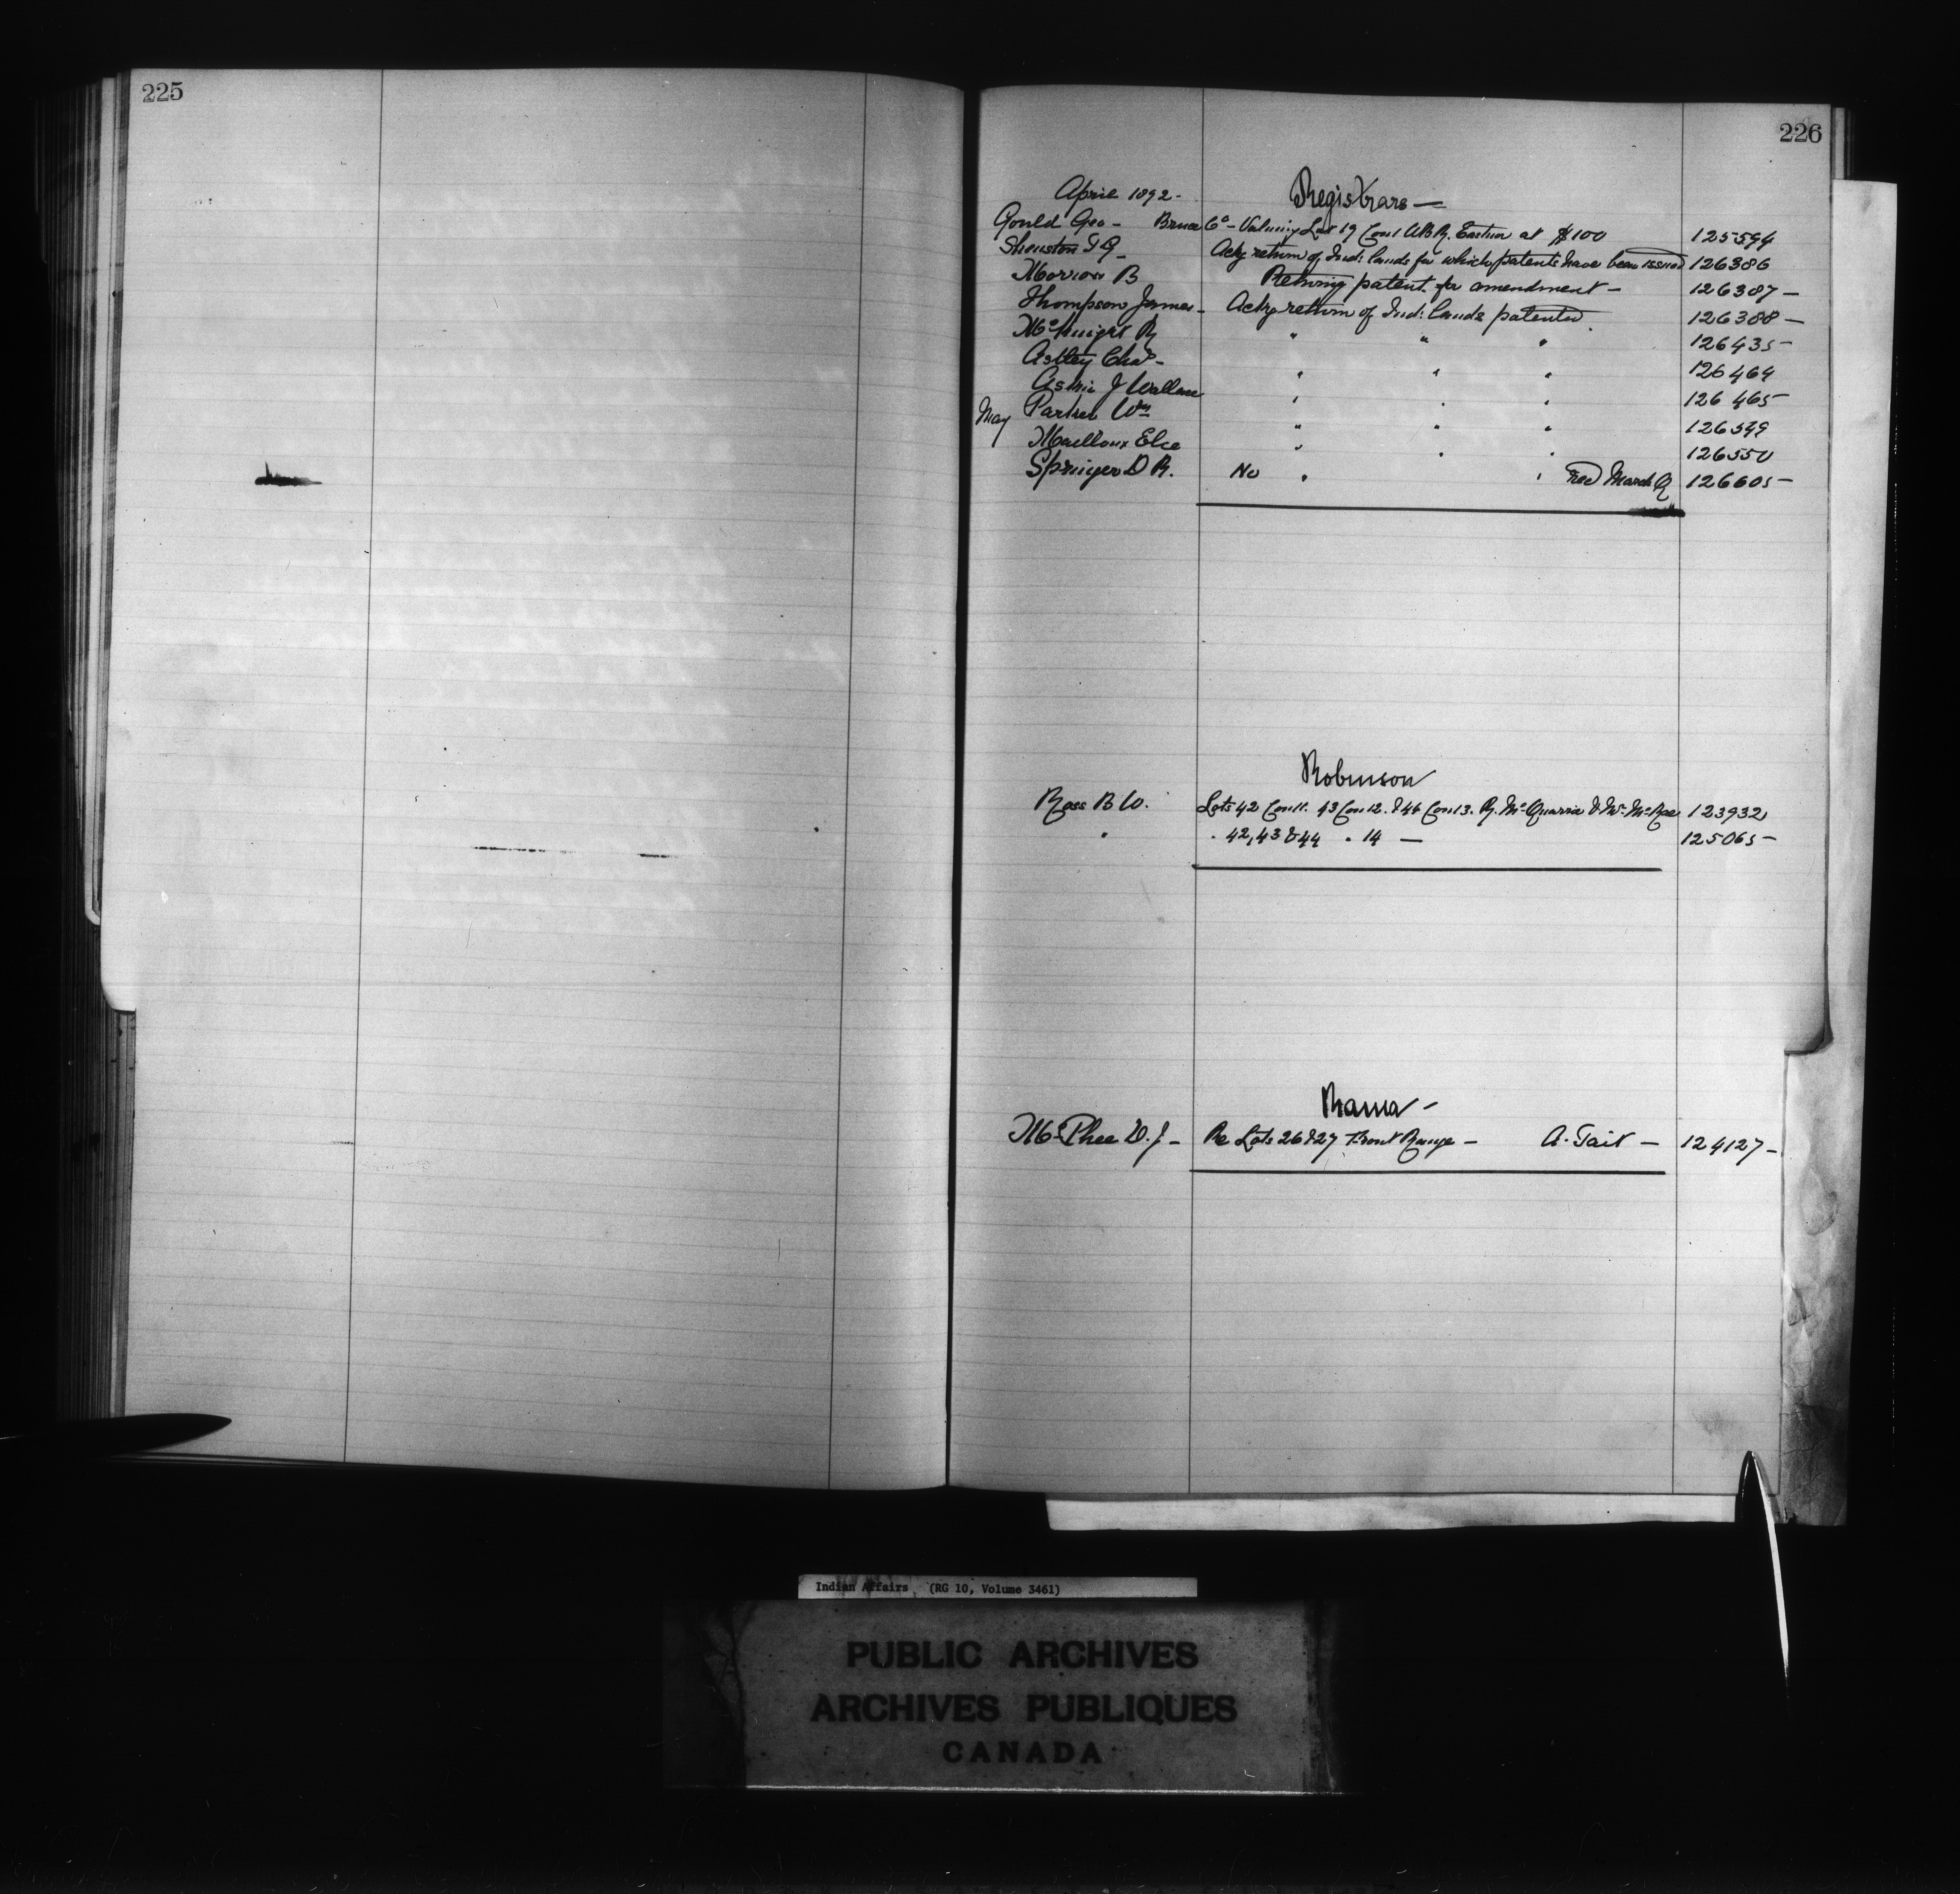 225
226
April 1892 -
Registrars —
Gould Geo - Bruce Co - Valuing Lot 19 Con 1 W.B.R. Eastnor at $100 125594
Shenston T S - Ackg return of Ind: lands for which patents have been issued 126386
Morrow B Returning patent for amendment - 126387 -
Thompson James - Ackg return of Ind: lands patented 126388 -
McKnight R " " " 126435 -
Astley Chas - " " " 126464
Askin J Wallace " " " 126465 -
May Parker Wm " " " 126549
Mailloux " " " 126550
Springer D R. No " " Tred March Q 126605 -
Robinson
Ross B W. Lots 42 Con 11. 43 Con 12. & 46 Con 13. R. McQuarrie & Mr. McRae 123932
" " 42, 43 & 44 " 14 — 125065 -
Rama -
McPhee D. J - Re Lots 26 & 27 Front Range - A. Tait - 124127 -
Indian Affairs (RG 10, Volume 3461)
PUBLIC ARCHIVES
ARCHIVES PUBLIQUES
CANADA